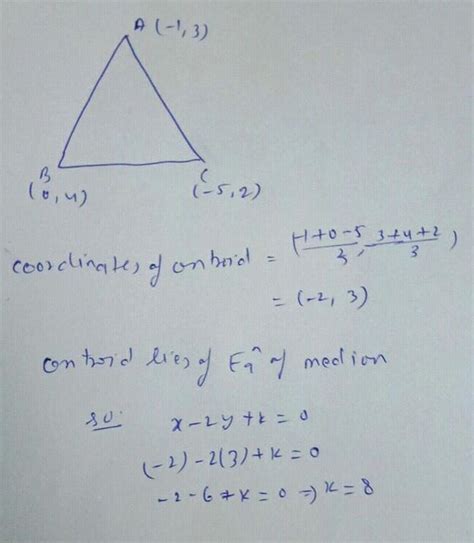 A (-1, 3)
B
C
(0, 4)
(-5, 2)
coordinates of centroid = (-1+0-5/3, 3+4+2/3)
= (-2, 3)
centroid lies of Eqⁿ of median
so:
x-2y+k=0
(-2)-2(3)+k=0
-2-6+k=0 => k=8